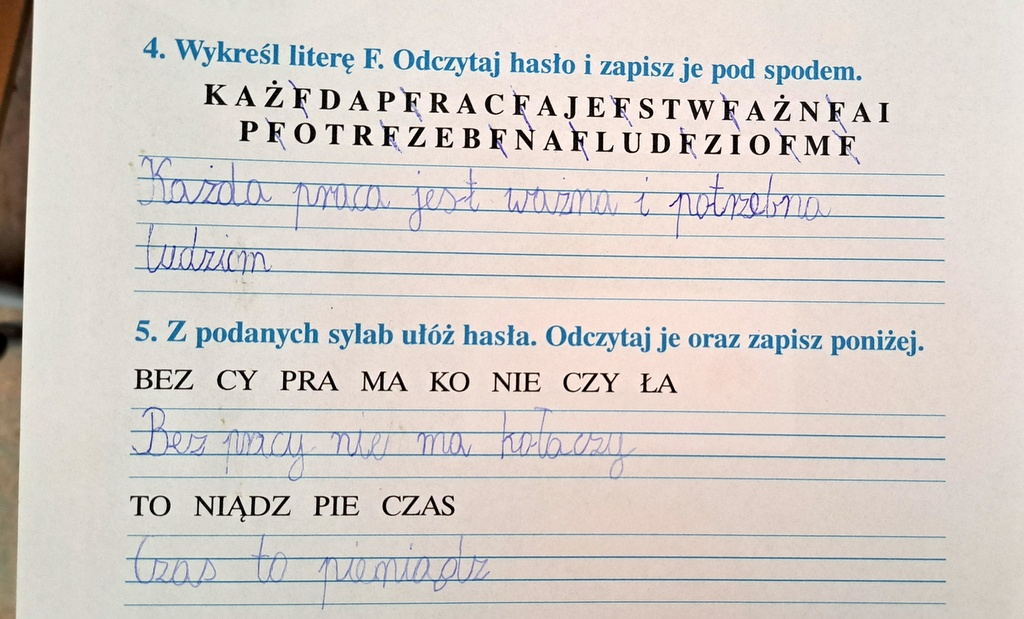 4. Wykreśl literę F. Odczytaj hasło i zapisz je pod spodem.
KAŻFDAPFRACFAJEFSTWFAŻNFAI
PFOTRFZEBFNAFLUDFZIOFMF
Każda praca jest ważna i potrzebna
ludziom
5. Z podanych sylab ułóż hasła. Odczytaj je oraz zapisz poniżej.
BEZ CY PRA MA KO NIE CZY ŁA
Bez pracy nie ma kołaczy
TO NIĄDZ PIE CZAS
Czas to pieniądz